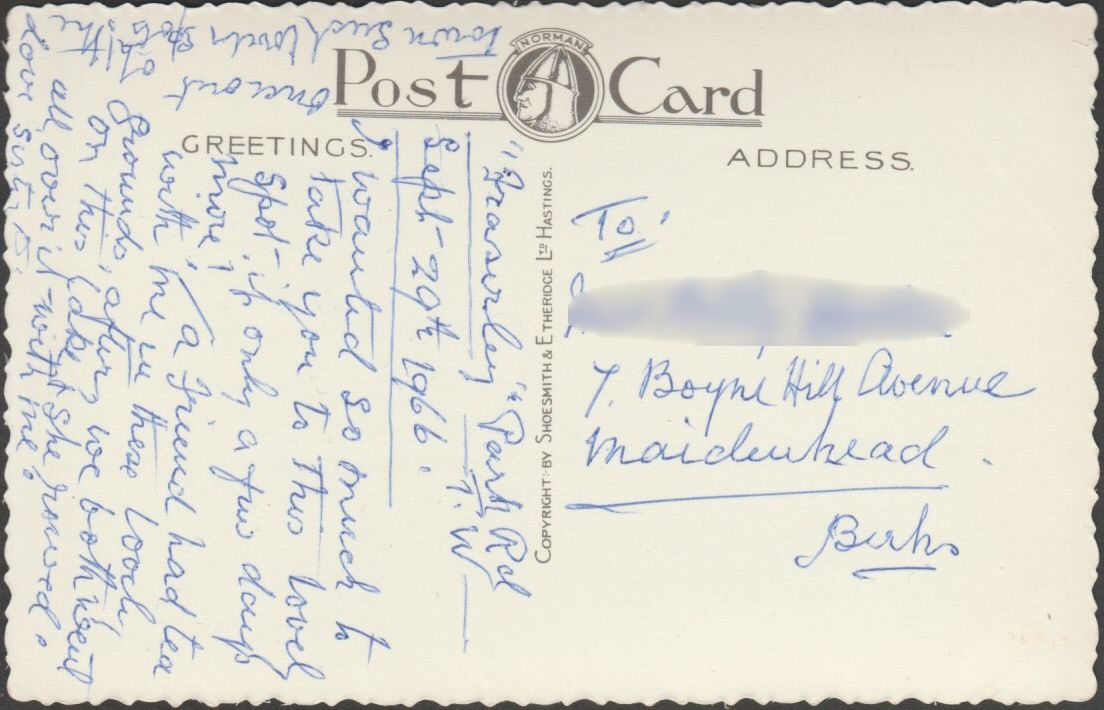 NORMAN
Post Card
GREETINGS.
ADDRESS.
"Fraserley" Park Rd
T. W
Sept- 29th 1966.
I wanted so much to
take you to this lovely
spot- if only a few days
more!
a friend had tea
with me in these lovely
grounds, after we both went
on this lake, she rowed.
all over it - with me!
love
once out of the
town such lovely spots
COPYRIGHT:-BY SHOESMITH & ETHERIDGE LTD HASTINGS.
To//
7. Boyne Hill Avenue
Maidenhead.
Berks